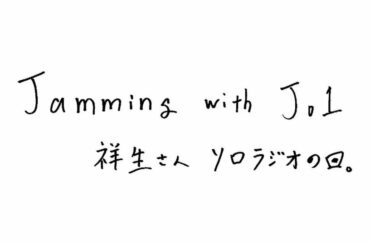 Jamming with J.1
祥生さん ソロラジオの回。